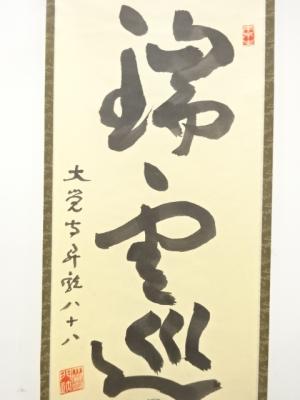 瑞雲巡
大覚寺昇龍八十八